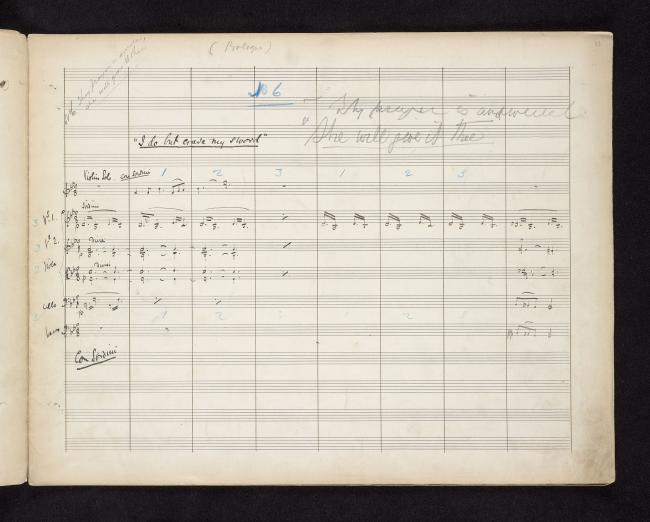 (Prologue)
No 6
Thy prayer is answered
"She will give it thee
"I do but crave my sword"
Violin Solo con sordini 1 2 3 1 2 3
3 Vn 1. sordini
3 Vn 2.
2 Viola
Cello
1 2 1 2 3
Con Sordini